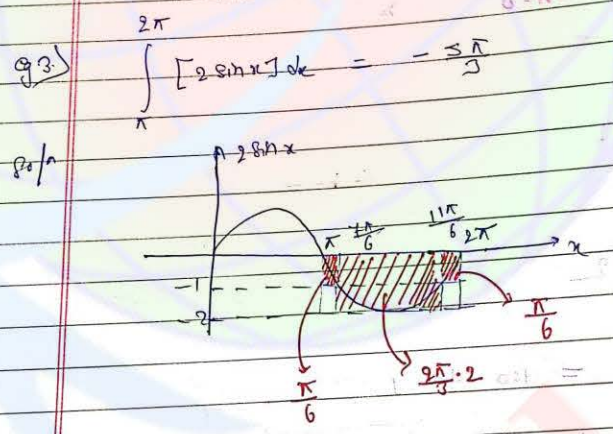 2π
Q3.) ∫ [2 sin x] dx = - 5π/3
π
Soln
2 sin x
π 7π/6 11π/6 2π x
-1
-2
π/6
π/6 2π/3 · 2